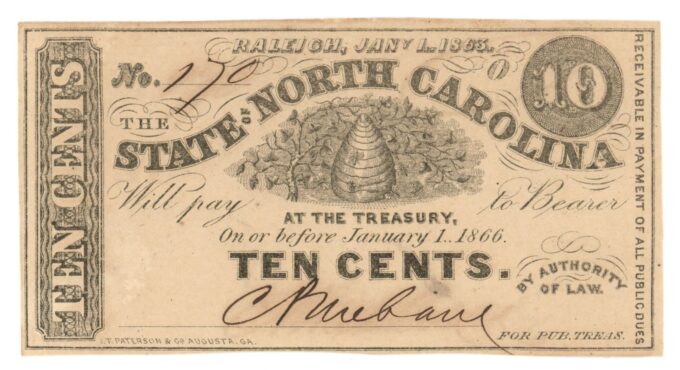 RALEIGH, JANY 1.. 1863.
No. 190
O
10
THE
STATE OF NORTH CAROLINA
Will pay to Bearer
AT THE TREASURY,
On or before January 1.. 1866.
TEN CENTS.
BY AUTHORITY
OF LAW.
C Mebane
FOR PUB. TREAS.
J.T. PATERSON & Co AUGUSTA, GA.
TEN CENTS
RECEIVABLE IN PAYMENT OF ALL PUBLIC DUES